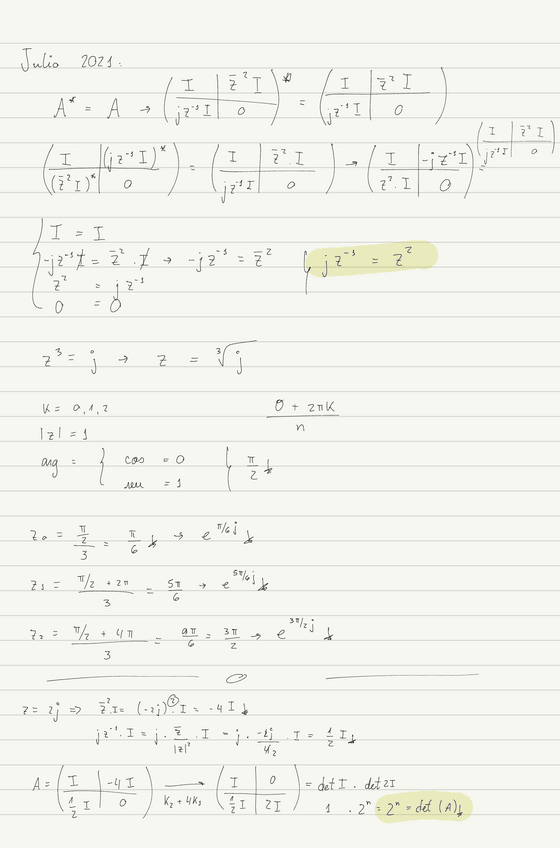 Julio 2021:
A* = A → ( I | z̄² I ; jz⁻¹ I | 0 )* = ( I | z̄² I ; jz⁻¹ I | 0 )
( I | (j z⁻¹ I)* ; (z̄² I)* | 0 ) = ( I | z̄² · I ; jz⁻¹ I | 0 ) → ( I | -j z̄⁻¹ I ; z² · I | 0 ) = ( I | z̄² I ; jz⁻¹ I | 0 )
{ I = I
-jz̄⁻¹ I = z̄² · I → -jz̄⁻¹ = z̄² { jz⁻¹ = z²
z² = j z⁻¹
0 = 0
z³ = j → z = ³√j
K = 0,1,2 (0 + 2πK)/n
|z| = 1
arg = { cos = 0 { π/2
sen = 1
z₀ = (π/2)/3 = π/6 → e^(π/6 j)
z₁ = (π/2 + 2π)/3 = 5π/6 → e^(5π/6 j)
z₂ = (π/2 + 4π)/3 = 9π/6 = 3π/2 → e^(3π/2 j)
z = 2j ⇒ z̄² · I = (-2j)² · I = -4 I
jz⁻¹ · I = j · z̄/|z|² · I = j · -2j/4 · I = 1/2 I
A = ( I | -4 I ; 1/2 I | 0 ) → K₂ + 4K₁ ( I | 0 ; 1/2 I | 2I ) = det I · det 2I
1 · 2ⁿ = 2ⁿ = det (A)